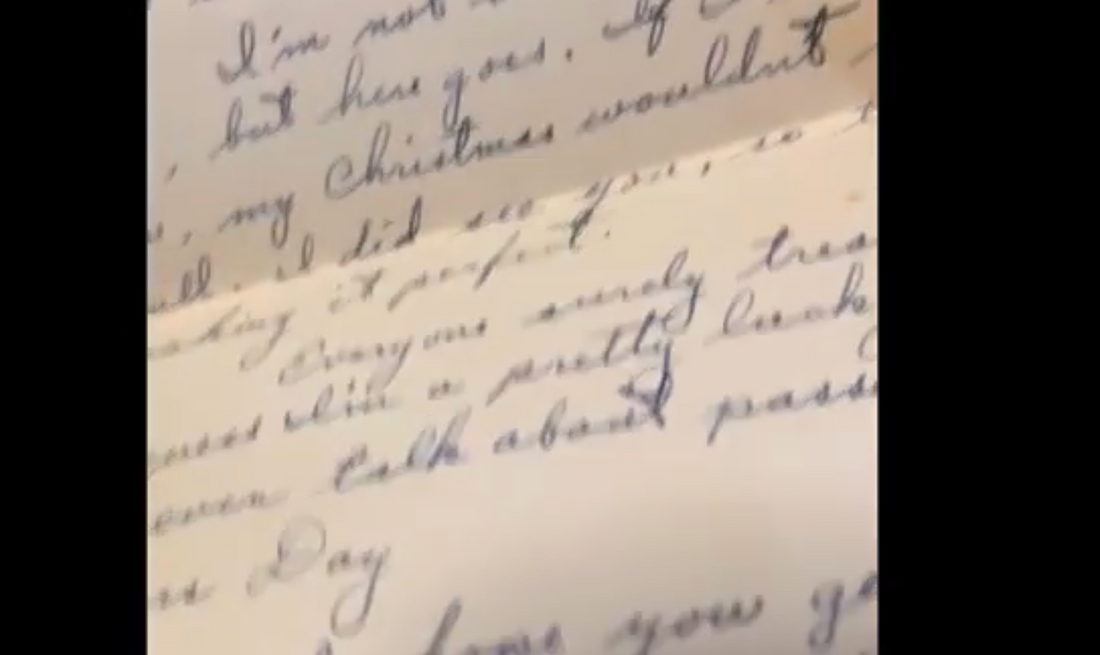 I'm not
, but here goes. If
, my Christmas wouldnt
I did see you, so
it perfect.
Everyone surely trea
I'm a pretty luck
ever talk about pass
Day
hope you ge